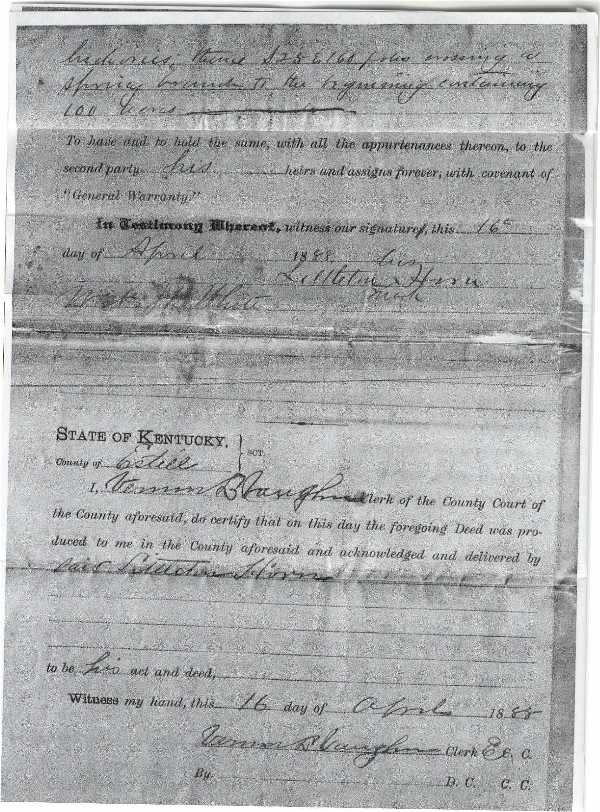 hickories, thence S25 E 160 poles crossing a
spring branch to the beginning containing
100 acres
To have and to hold the same, with all the appurtenances thereon, to the
second party his heirs and assigns forever, with covenant of
"General Warranty."
In Testimony Whereof, witness our signature, this 16
day of April 1888
his
Littleton Horn
mark
White
STATE OF KENTUCKY,
County of Estill SCT.
I, Vernon B Vaughn Clerk of the County Court of
the County aforesaid, do certify that on this day the foregoing Deed was pro-
duced to me in the County aforesaid and acknowledged and delivered by
said Littleton Horn
to be his act and deed,
Witness my hand, this 16 day of April 1888
Vernon B Vaughn Clerk E. C. C.
By D. C. C. C.